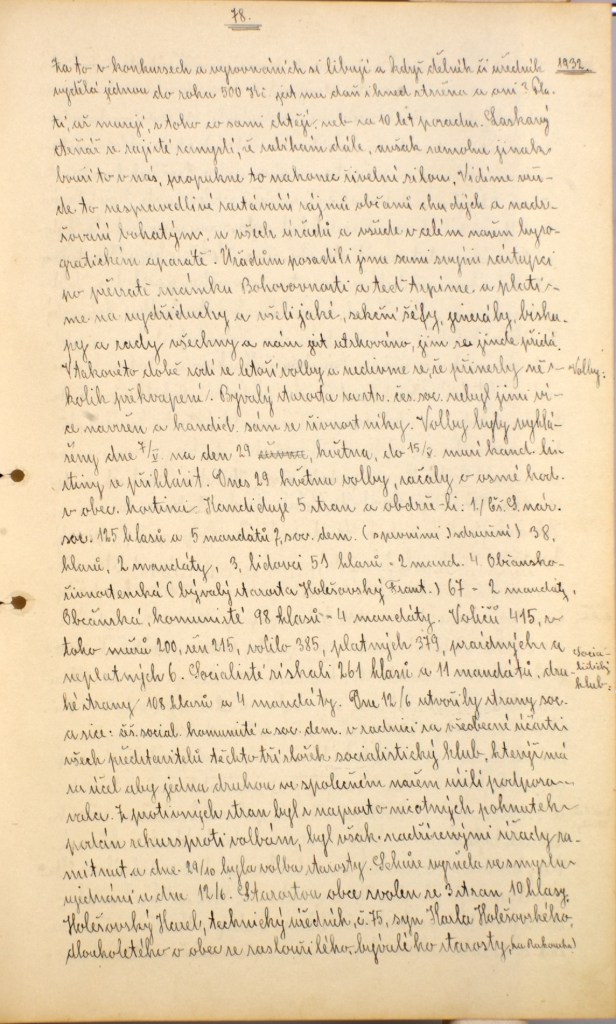 78.
1932.
Za to v konkursech a vyrovnáních si libují a když dělník či úředník
vydělá jednou do roka 500 Kč. jest mu daň ihned stržena a oni? Pla-
tí, až musejí, z toho co sami chtějí, neb za 10 let pozadu. Laskavý
čtenář v zajisté zamyslí, že zabíhám dále, avšak nemohu jinak
bouří to v nás, propukne to nakonec živelní silou. Vidíme vší-
de to nespravedlivé zastávání zájmů občanů chudých a nadr-
žování bohatým, u všech úřadů a všude v celém našem byro-
gratickém aparátě. Úřadům posadili jsme sami svými zástupci
po převratě mámku Bohorovnosti a teď trpíme a platí-
me na vydřiduchy a všelijaké, sekční šéfy, generály, bisku-
py a rady všechny a nám jest utrhováno, jim se jinde přidá.
V takovéto době rodí se letoší volby a nedivme se, že přinesly ně-
Volby:
kolik překvapení. Bývalý starosta za str. čes. soc. nebyl jimi ví-
ce navržen a kandid. sám se živnostníky. Volby byly vyhlá-
šeny dne 7/V. na den 29 května, do 15/V. musí kand. li-
stiny se přihlásit. Dnes 29 května volby, začaly o osmé hod.
v obec. hostinci. Kandiduje 5 stran a obdrželi: 1./ Čs. S. nár.
soc. 125 hlasů a 5 mandátů 2, soc. dem. (spravními Sdružení) 38,
hlasů, 2 mandáty, 3, lidovci 51 hlasů - 2 mand. 4. Občansko-
živnostenská (bývalý starosta Holešovský Frant.) 67 - 2 mandáty,
Občánská, komunisté 98 hlasů - 4 mandáty. Voličů 415, z
toho mužů 200, žen 215, volilo 385, platných 379, prázdných a
neplatných 6. Socialisté získali 261 hlasů a 11 mandátů, dru-
Socia-
listický
klub:
hé strany 108 hlasů a 4 mandáty. Dne 12/6 utvořily strany soc.
a sice: čs. social. komunisté a soc. dem. v radnici za všeobecné účasti
všech představitelů těchto tří složek socialistický klub, kterýž má
za účel aby jedna druhou ve společném našem úsilí podporo-
vala. Z protivných stran byl z naprosto nicotných pohnutek
podán rekurs proti volbám, byl však nadřízenými úřady za-
mítnut a dne 29/10 byla volba starosty. Schůze vyzněla ve smyslu
ujednání z dne 12/6. Starostou obce zvolen ze 3 stran 10 hlasy
Holešovský Karel, technický úředník, č. 75, syn Karla Holešovského,
dlouholetého o obec se zasloužilého bývalého starosty, (na Rakousku)